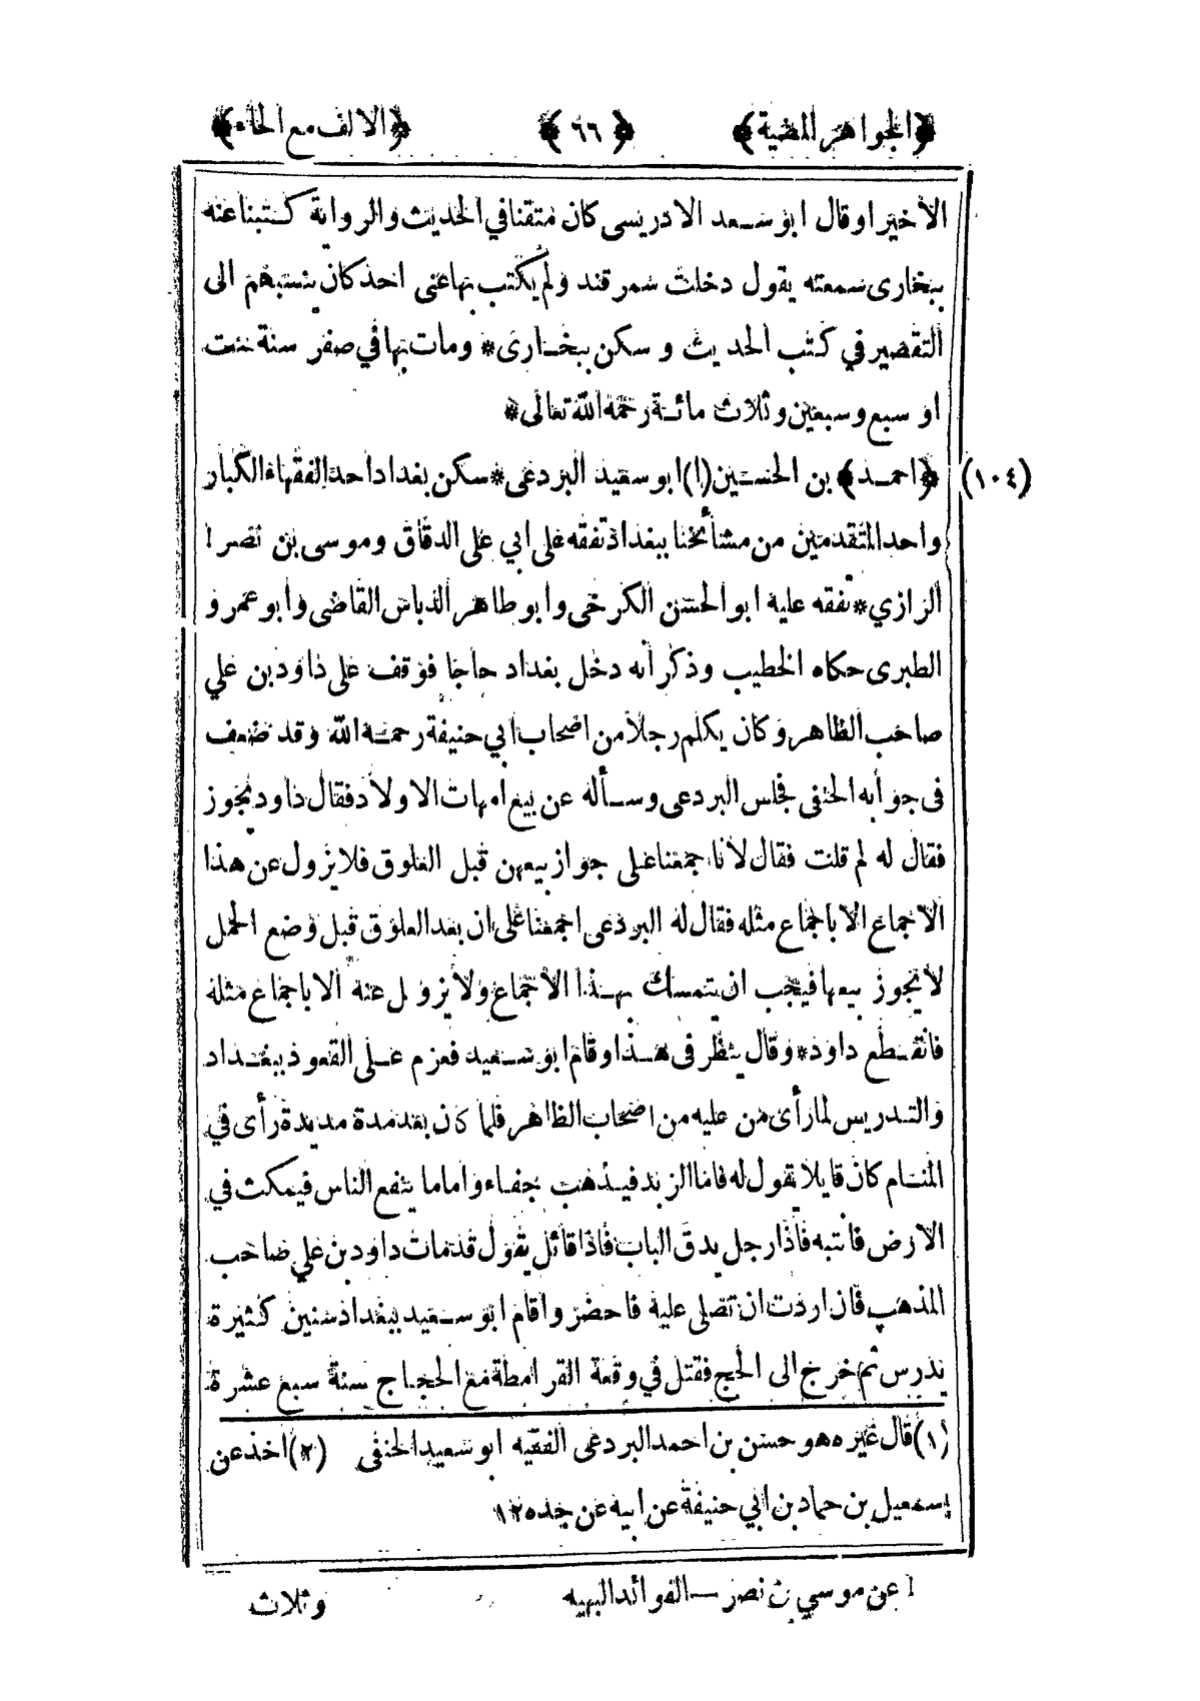 ﴿الجواهر المضية﴾ ﴿٦٦﴾ ﴿الالف مع الحاء﴾
الاخير او قال ابو سعد الادريسى كان متقنا في الحديث والرواية كتبنا عنه
ببخارى سمعته يقول دخلت سمرقند ولم يكتب بها عنى احد كان ينسبهم الى
التقصير في كتب الحديث و سكن ببخارى* ومات بها في صفر سنة ست
او سبع وسبعين وثلاث مائة رحمة الله تعالى*
(١٠٤) ﴿احمد﴾ بن الحسين(١) ابو سعيد البردعى* سكن بغداد احد الفقهاء الكبار
واحد المتقدمين من مشائخنا ببغداد تفقه على ابي على الدقاق وموسى بن نصر ا
الرازي* تفقه عليه ابو الحسن الكرخى وابو طاهر الدباس القاضى وابو عمرو
الطبرى حكاه الخطيب وذكر انه دخل بغداد حاجا فوقف على داود بن علي
صاحب الظاهر وكان يكلم رجلا من اصحاب ابي حنيفة رحمة الله وقد ضعف
فى جوابه الحنفى فجلس البردعى وسأله عن بيع امهات الاولاد فقال داود يجوز
فقال له لم قلت فقال لانا اجمعنا على جواز بيعهن قبل العلوق فلا يزول عن هذا
الاجماع الا باجماع مثله فقال له البردعى اجمعنا على ان بعد العلوق قبل وضع الحمل
لا يجوز بيعها فيجب ان يتمسك بهذا الاجماع ولا يزول عنه الا باجماع مثله
فانقطع داود* وقال ينظر فى هذا وقام ابو سعيد فعزم على القعود ببغداد
والتدريس لما رأى من عليه من اصحاب الظاهر فلما كان بعد مدة مديدة رأى في
المنام كان قايلا يقول له فاما الزبد فيذهب جفاء واما ما ينفع الناس فيمكث في
الارض فانتبه فاذا رجل يدق الباب فاذا قائل يقول قد مات داود بن علي صاحب
المذهب فان اردت ان تصلى عليه فاحضر واقام ابو سعيد ببغداد سنين كثيرة
يدرس ثم خرج الى الحج فقتل في وقعة القرامطة مع الحجاج سنة سبع عشرة
(١) قال غيره هو حسن بن احمد البردعى الفقيه ابو سعيد الحنفى (٢) اخذ عن
إسمعيل بن حماد بن ابي حنيفة عن ابيه عن جده ١٢
ا عن موسي بن نصر — الفوائد البهيه
وثلاث